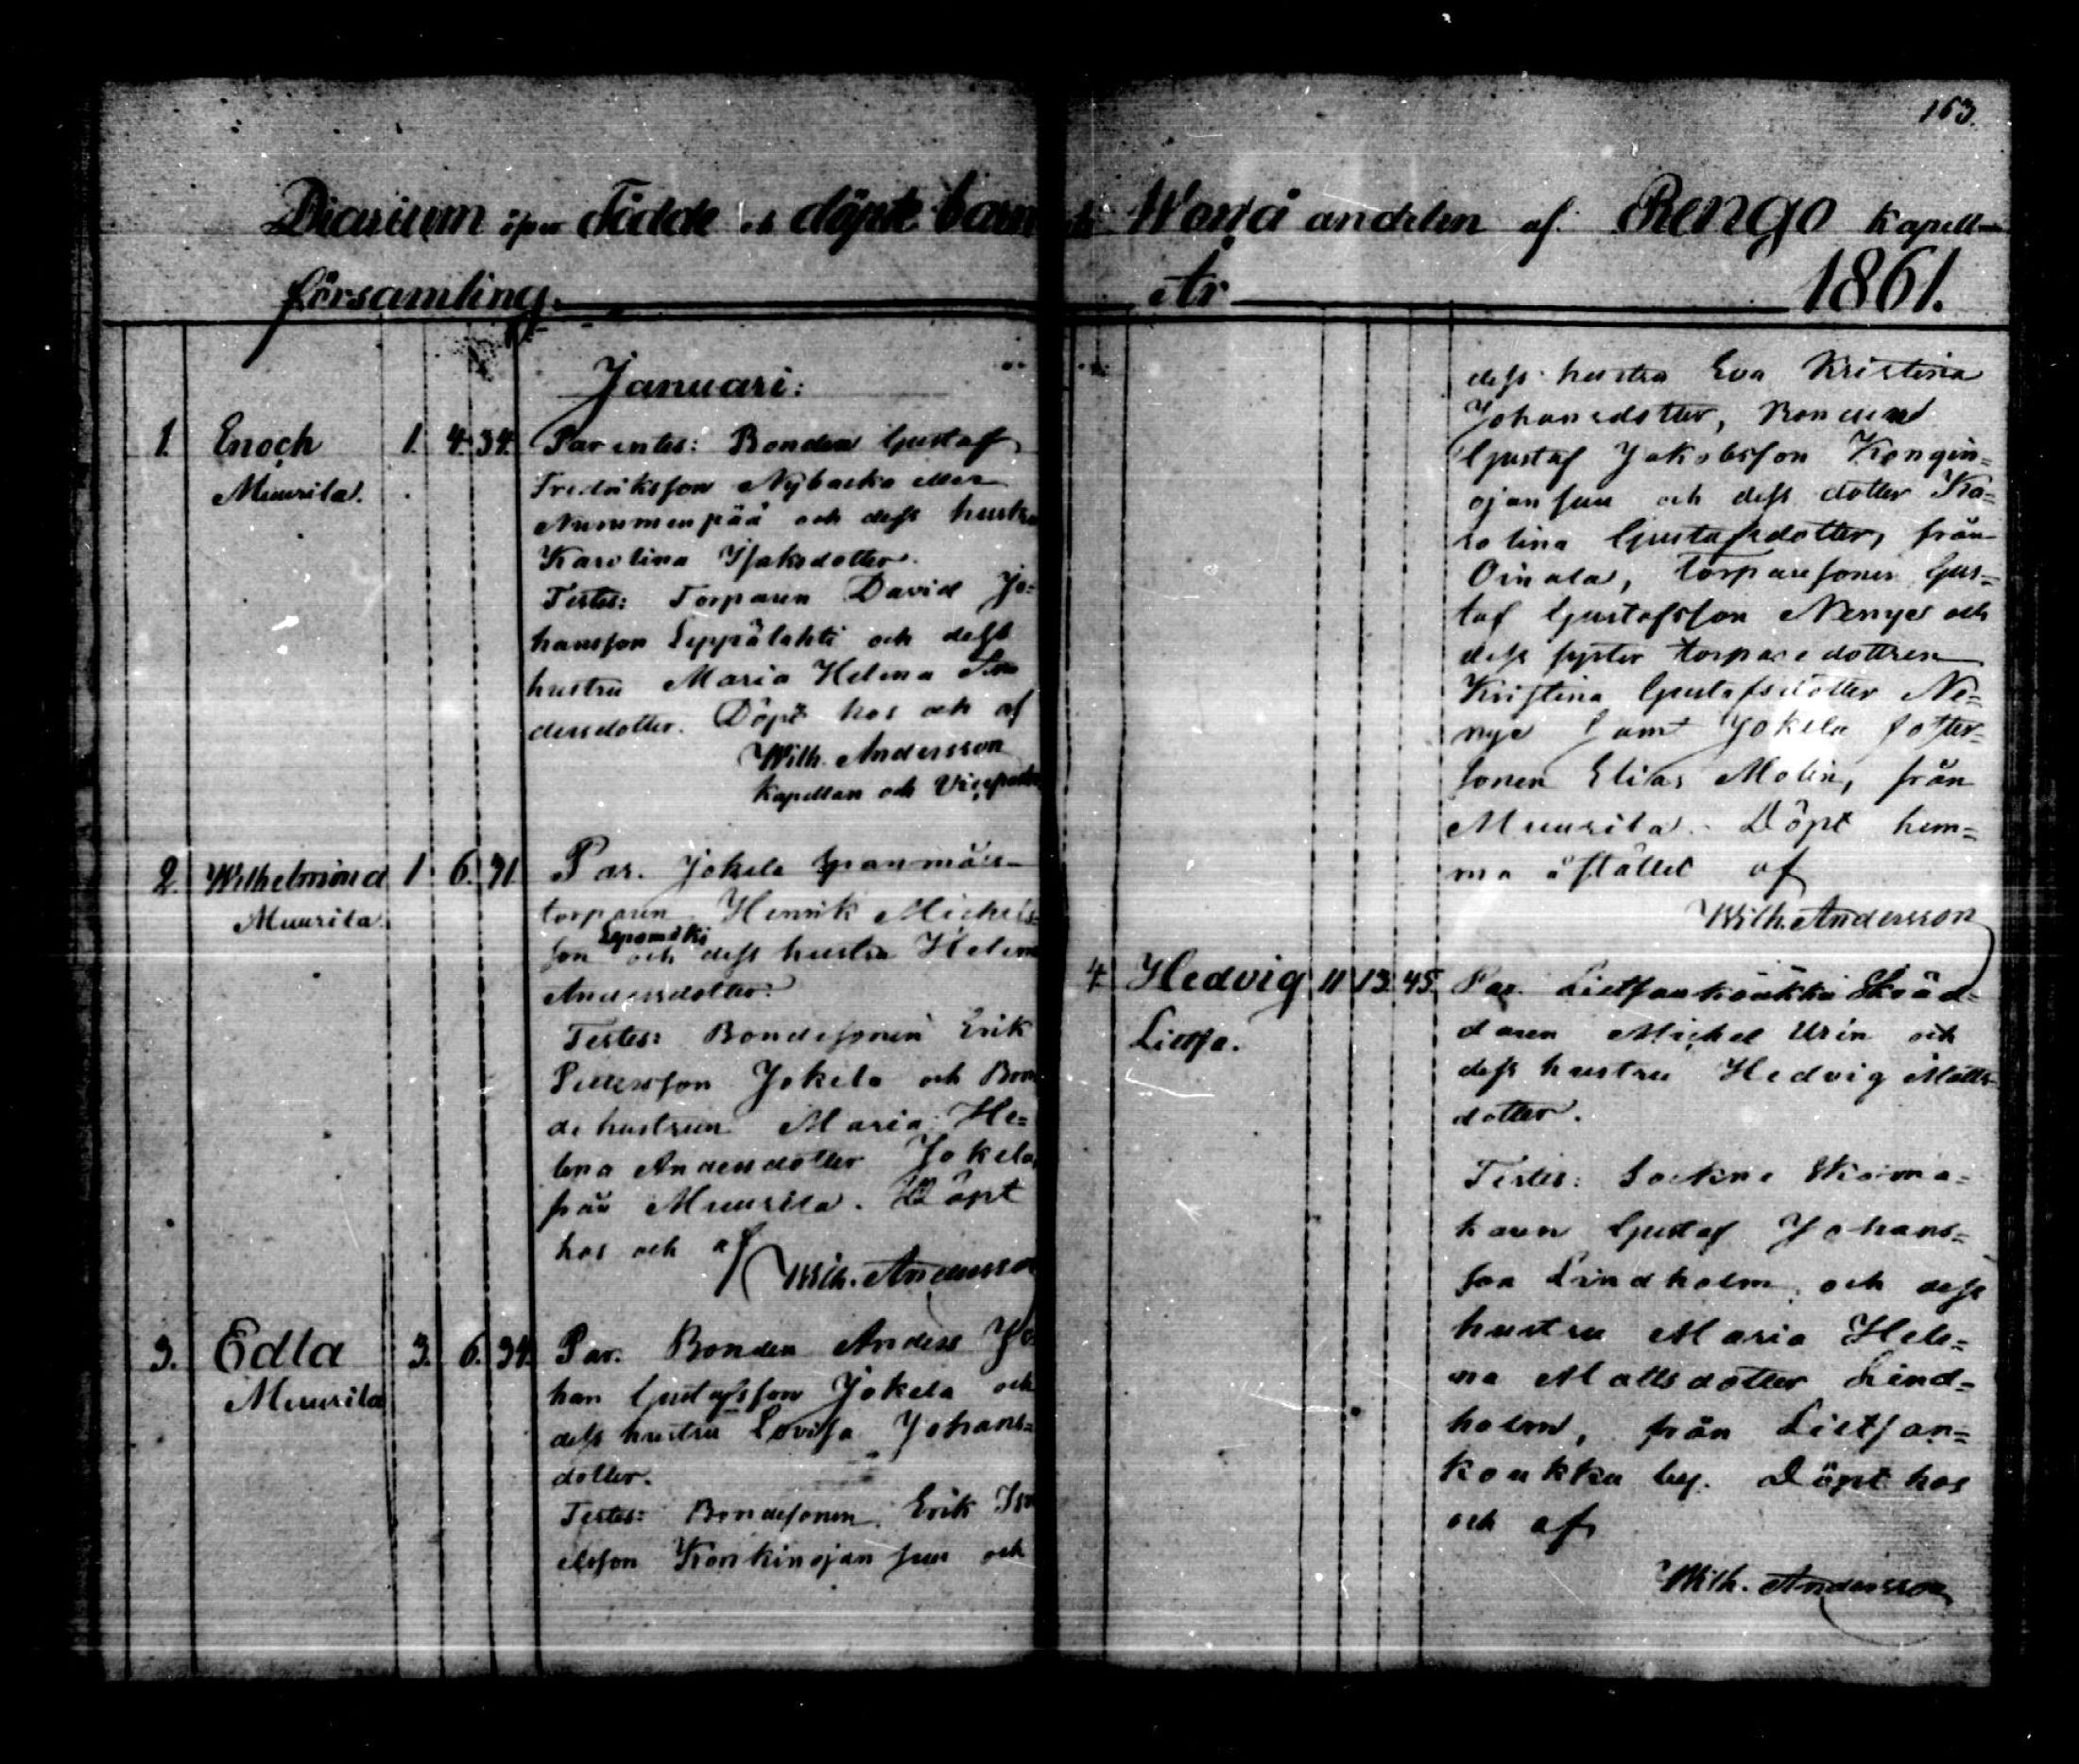 163.
Diarium öfver Födde och döpte barn
församling.
Januari:
1. Enoch 1. 4. 34. Parentes: Bonden Gustaf
Muurila. Fredriksson Nybacka eller
Nummenpää och dess hustru
Karolina Isaksdotter.
Testes: Torparen David Jo=
hansson Leppälahti och dess
hustru Maria Helena An
dersdotter. Döpt hos och af
Wilh. Andersson
Kapellan och Vicepastor
2. Wilhelmina 1. 6. 31 Par. Jokela
Muurila. torparen Henrik Michels=
Lepomäki
son och dess hustru Helena
Andersdotter.
Testes: Bondesonen Erik
Petersson Jokela och Bon
dehustrun Maria He=
lena Andersdotter Jokela,
från Muurila. Döpt
hos och af
Wilh. Andersson
3. Edla 3. 6. 34. Par. Bonden Anders Jo
Muurila han Gustafsson Jokela och
dess hustru Lovisa Johans=
dotter.
Testes: Bondesonen Erik
Konkinojansuu och
Wonå andelen af Rengo Kapell=
År 1861.
dess hustru Eva Kristina
Johansdotter, Bonden
Gustaf Jakobsson Kongin=
ojansuu och dess dotter Ka=
rolina Gustafsdotter, från
Oinala, Torparesonen Gus=
taf Gustafsson Nenye och
dess syster torparedottren
Kristina Gustafsdotter Ne=
nye samt Jokela foster=
sonen Elias Molin, från
Muurila. Döpt hem=
ma å stället af
Wilh. Andersson
4. Hedvig 11 13. 45. Par. Lietsankoukku Skräd=
Lietsa. daren Michel Urin och
dess hustru Hedvig Matts
dotter.
Testes: Sockne Skoma=
karen Gustaf Johans=
son Lindholm och dess
hustru Maria Hele=
na Mattsdotter Lind=
holm, från Lietsan=
koukku by. Döpt hos
och af
Wilh. Andersson